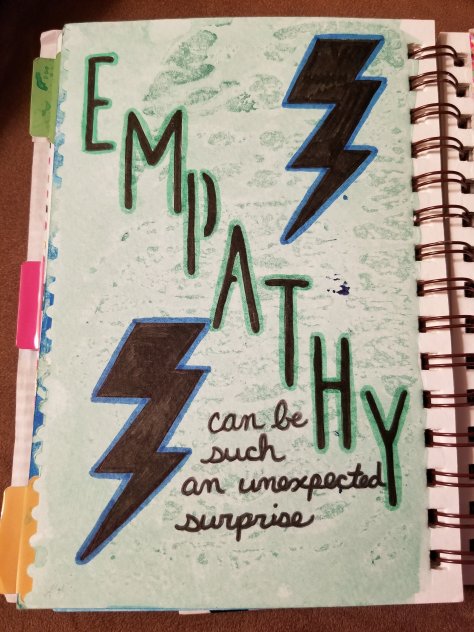 EMPATHY
can be
such
an unexpected
surprise